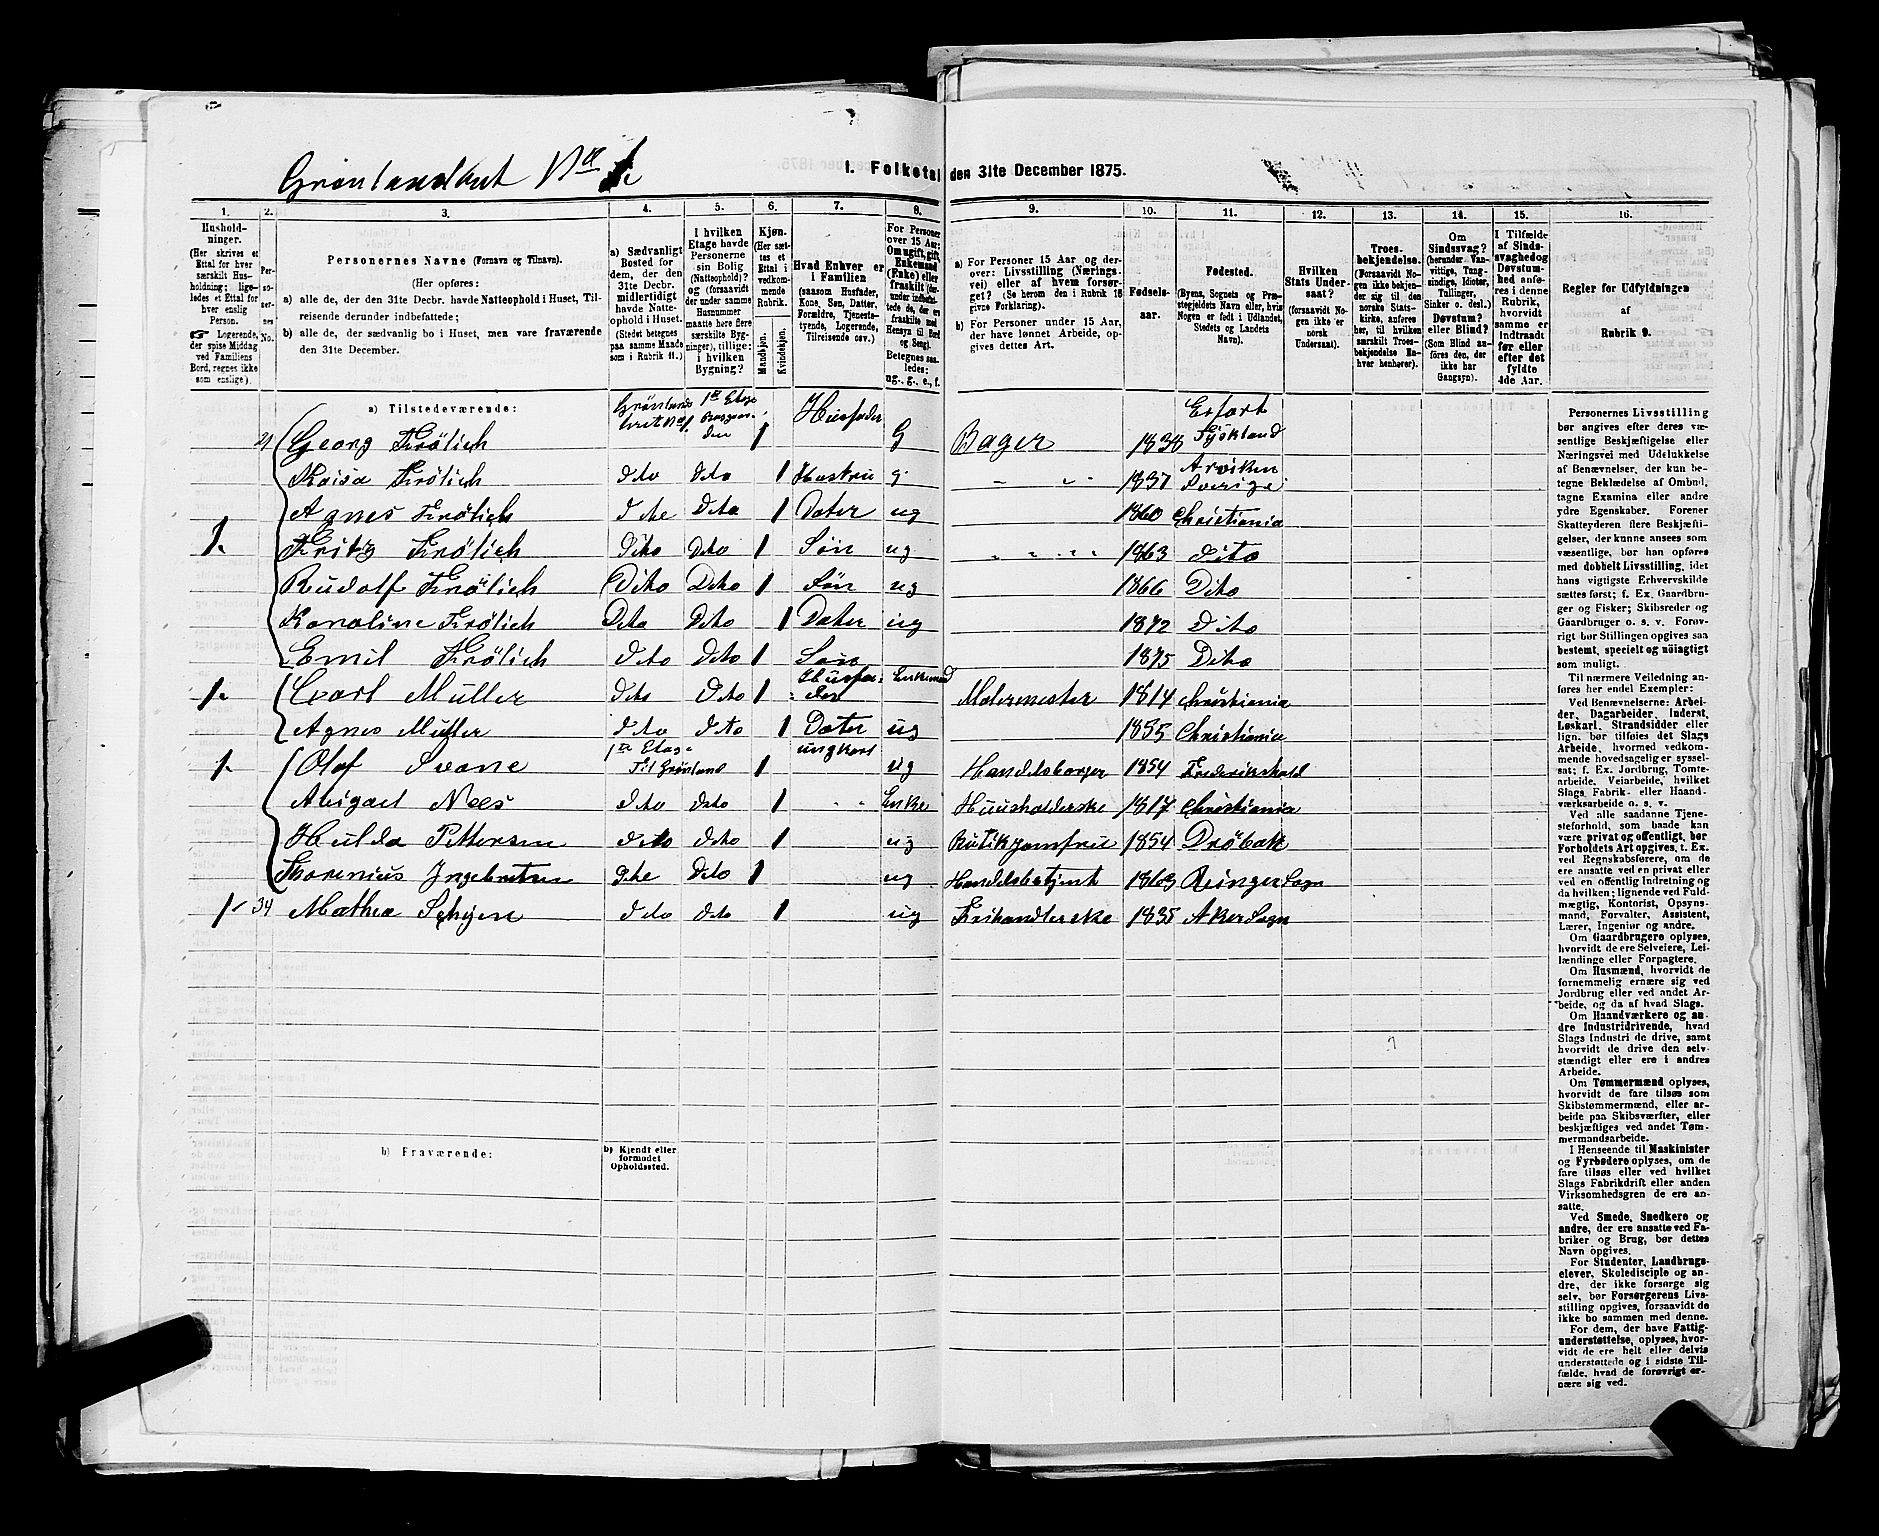 Grønlandsleret No 1.
1. Folketal den 31te December 1875.
1. 2. 3. 4. 5. 6. 7. 8. 9. 10. 11. 12. 13. 14. 15. 16.
Husholdninger.
(Her skrives et Ettal for hver særskilt Husholdning; ligeledes et Ettal for hver enslig Person.
Logerende, der spise Middag ved Familiens Bord, regnes ikke som enslige).
Personernes No.
Personernes Navne (Fornavn og Tilnavn).
(Her opføres:
a) alle de, der den 31te Decbr. havde Natteophold i Huset, Tilreisende derunder indbefattede;
b) alle de, der sædvanlig bo i Huset, men vare fraværende den 31te December.
a) Sædvanligt Bosted for dem, der den 31te Decbr. midlertidigt havde Natteophold i Huset. (Stedet betegnes paa samme Maade som i Rubrik 11.)
I hvilken Etage havde Personerne sin Bolig (Natteophold)? og (forsaavidt der under samme Husnummer maatte høre flere særskilte Bygninger), tillige: i hvilken Bygning?
Kjøn.
(Her sættes et Ettal i vedkommende Rubrik.
Mandkjøn.
Kvindekjøn.
Hvad Enhver er i Familien
(saasom Husfader, Kone, Søn, Datter, Forældre, Tjenestetyende, Logerende, Tilreisende osv.)
For Personer over 15 Aar: Om ugift, gift, Enkemand (Enke) eller fraskilt
Betegnes saaledes: ug., g., e., f.
a) For Personer 15 Aar og derover: Livsstilling (Næringsvei) eller af hvem forsørget? (Se herom den i Rubrik 16 givne Forklaring).
b) For Personer under 15 Aar, der have lønnet Arbeide, opgives dettes Art.
Fødselsaar.
Fødested.
(Byens, Sognets og Præstegjeldets Navn eller, hvis Nogen er født i Udlandet, Stedets og Landets Navn).
Hvilken Stats Undersaat?
(forsaavidt Nogen ikke er norsk Undersaat).
Troesbekjendelse.
(Forsaavidt Nogen ikke bekjender sig til den norske Statskirke, anføres her, til hvilken særskilt Troesbekjendelse Enhver henhører).
Om Sindssvag? (herunder Vanvittige, Tungsindige, Idioter, Tullinger, Sinker o. desl.) Døvstum? eller Blind? (Som Blind anføres den, der ikke har Gangsyn).
I Tilfælde af Sindssvaghed og Døvstumhed anføres i denne Rubrik, hvorvidt samme er Indtraadt før eller efter det fyldte 4de Aar.
Regler for Udfyldningen af Rubrik 9.
a) Tilstedeværende:
21 Georg Frölich 1 Husfader G Bager 1838 Erfort Tyskland
Kaisa Frölich dito Dito 1 Hustru g 1837 Arviken Sverige
Agnes Frölich Dito 1 Dater ug 1860 Christiania
1. Fritz Frölich Dito Dito 1 Søn ug 1863 Dito
Rudolf Frölich Dito Dito 1 Søn ug 1866 Dito
Karoline Frölich Dito Dito 1 Dater ug 1872 Dito
Emil Frölich Dito Dito 1 Søn 1875 Dito
1. Carl Muller Dito Dito 1 Husfader Enkemand Malermester 1814 Christiania
Agnes Muller dito dito 1 Dater ug 1855 Christiania
1. Olaf Svane 1ste Etage Til Grønland 1 ungkarl ug Handelsborger 1854 Frederikshald
Abigael Nees dito dito 1 Enke Huusholderske 1817 Christiania
Hulda Pettersen dito dito 1 ug Butikjomfru 1854 Drøbak
Thorenius Ingebretsen dito 1 ug Handelsbetjent 1863 Ringer Sogn
1 34 Mathea Schjen dito dito 1 ug Frihandlerske 1835 Aker Sogn
b) Fraværende:
b) Kjendt eller formodet Opholdssted.
Personernes Livsstilling bør angives efter deres væsentlige Beskjæftigelse eller Næringsvei med Udelukkelse af Benævnelser, der kun betegne Beklædelse af Ombud, tagne Examina eller andre ydre Egenskaber. Forener Skatteyderen flere Beskjæftigelser, der kunne ansees som væsentlige, bør han opføres med dobbelt Livsstilling, idet hans vigtigste Erhvervskilde sættes først; f. Ex. Gaardbruger og Fisker; Skibsreder og Gaardbruger o. s. v. Forøvrigt bør Stillingen opgives saa bestemt, specielt og nöiagtigt som muligt.
Til nærmere Veiledning anføres her endel Exempler:
Ved Benævnelserne: Arbeider, Dagarbeider, Inderst, Løskarl, Strandsidder eller lign. bør tilføies det Slags Arbeide, hvormed vedkommende hovedsagelig er sysselsat; f. Ex. Jordbrug, Tomtearbeide, Veiarbeide, hvilket Slags Fabrik- eller Haandværksarbeide o. s. v.
Ved alle saadanne Tjenesteforhold, som baade kan være privat og offentligt, bør Forholdets Art opgives, t. Ex. ved Regnskabsførere, om de ere ansatte ved en privat eller ved en offentlig Indretning og da hvilken; lignende ved Fuldmægtig, Kontorist, Opsynsmand, Forvalter, Assistent, Lærer, Ingeniør og andre.
Om Gaardbrugere oplyses, hvorvidt de ere Selveiere, Leilændinge eller Forpagtere.
Om Husmænd, hvorvidt de fornemmelig ernære sig ved Jordbrug eller ved andet Arbeide, og da af hvad Slags.
Om Haandværkere og andre Industridrivende, hvad Slags Industri de drive, samt hvorvidt de drive den selvstændigt eller ere i andres Arbeide.
Om Tømmermænd oplyses, hvorvidt de fare tilsøs som Skibstømmermænd, eller arbeide paa Skibsværfter, eller beskjæftiges ved andet Tømmermandsarbeide.
I Henseende til Maskinister og Fyrbødere oplyses, om de fare tilsøs eller ved hvilket Slags Fabrikdrift eller anden Virksomhedsgren de ere ansatte.
Ved Smede, Snedkere og andre, der ere ansatte ved Fabriker og Brug, bør dettes Navn opgives.
For Studenter, Landbrugselever, Skoledisciple og andre, der ikke forsørge sig selv, bør Forsørgerens Livsstilling opgives, forsaavidt de ikke bo sammen med denne.
For dem, der have Fattigunderstøttelse, oplyses, hvorvidt de ere helt eller delvis understøttede og i sidste Tilfælde, hvad de forøvrigt ernære sig ved.